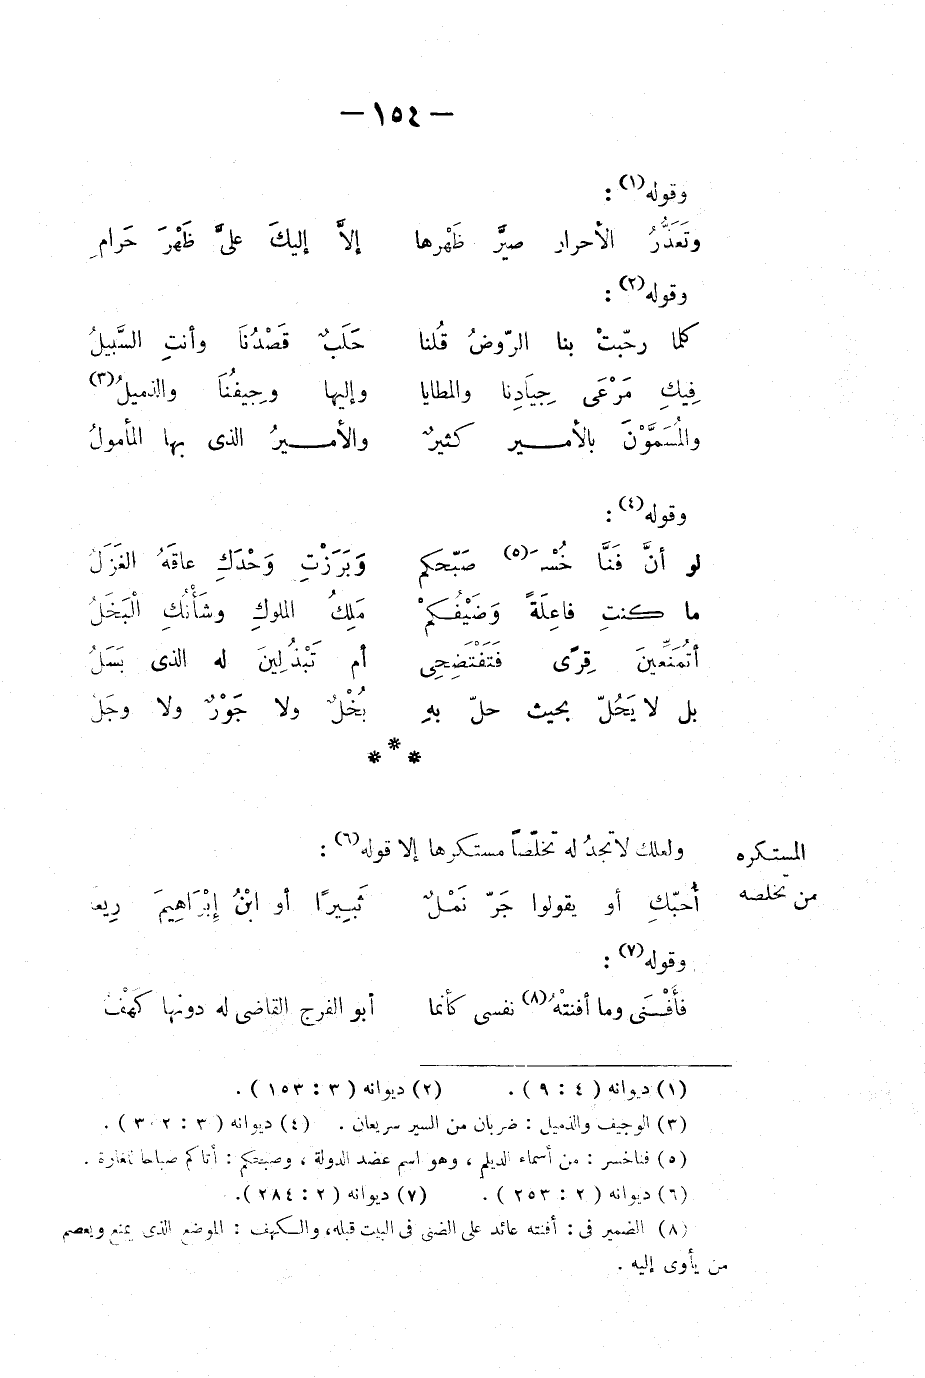 — ١٥٤ —
وقوله(١) :
وتَعَذُّرُ الأحرار صيَّر ظَهْرها إلاَّ إليكَ علىَّ ظَهْرَ حَرامِ
وقوله(٢) :
كلما رحّبتْ بنا الرّوضُ قُلنا حَلَبٌ قَصْدُنَا وأنتِ السَّبيلُ
فِيكِ مَرْعَى جِيَادِنا والمطايا وإليها وجِيفُنَا والذميلُ(٣)
والمُسَمَّوْنَ بالأمــير كثيرٌ والأمــيرُ الذى بها المأمولُ
وقوله(٤) :
لو أنَّ فَنَّا خُسْرَ(٥) صَبّحكم وَبَرَزْتِ وَحْدَكِ عاقَهُ الغَزَلُ
ما كنتِ فاعِلَةً وَضَيْفُكمْ مَلِكُ الملوكِ وشَأْنُكِ الْبَخَلُ
أتُمَنِّعِينَ قِرًى فَتَفْتَضِحِى أم تَبْذُلِينَ له الذى يَسَلُ
بل لا يَحُلّ بحيث حلّ بهِ بُخْلٌ ولا جَوْرٌ ولا وجَلُ
* * *
المستكره
من تخلصه
ولعلك لا تجدُ له تخلّصاً مستكرها إلا قوله(٦) :
أُحبّكِ أو يقولوا جَرّ نَمْلٌ ثَبِيرًا أو ابْنُ إبْرَاهِيمَ رِيعا
وقوله(٧) :
فأَفْنَى وما أفنتْهُ(٨) نفسى كأنما أبو الفرج القاضى له دونها كَهْفُ
(١) ديوانه ( ٤ : ٩ ) . (٢) ديوانه ( ٣ : ١٥٣ ) .
(٣) الوجيف والذميل : ضربان من السير سريعان . (٤) ديوانه ( ٣ : ٣٠٢ ) .
(٥) فناخسر : من أسماء الديلم ، وهو اسم عضد الدولة ، وصبحكم : أتاكم صباحا للغارة .
(٦) ديوانه ( ٢ : ٢٥٣ ) . (٧) ديوانه ( ٢ : ٢٨٤ ).
(٨) الضمير فى : أفنته عائد على الضنى فى البيت قبله، والكهف : الموضع الذى يمنع ويعصم
من يأوى إليه .